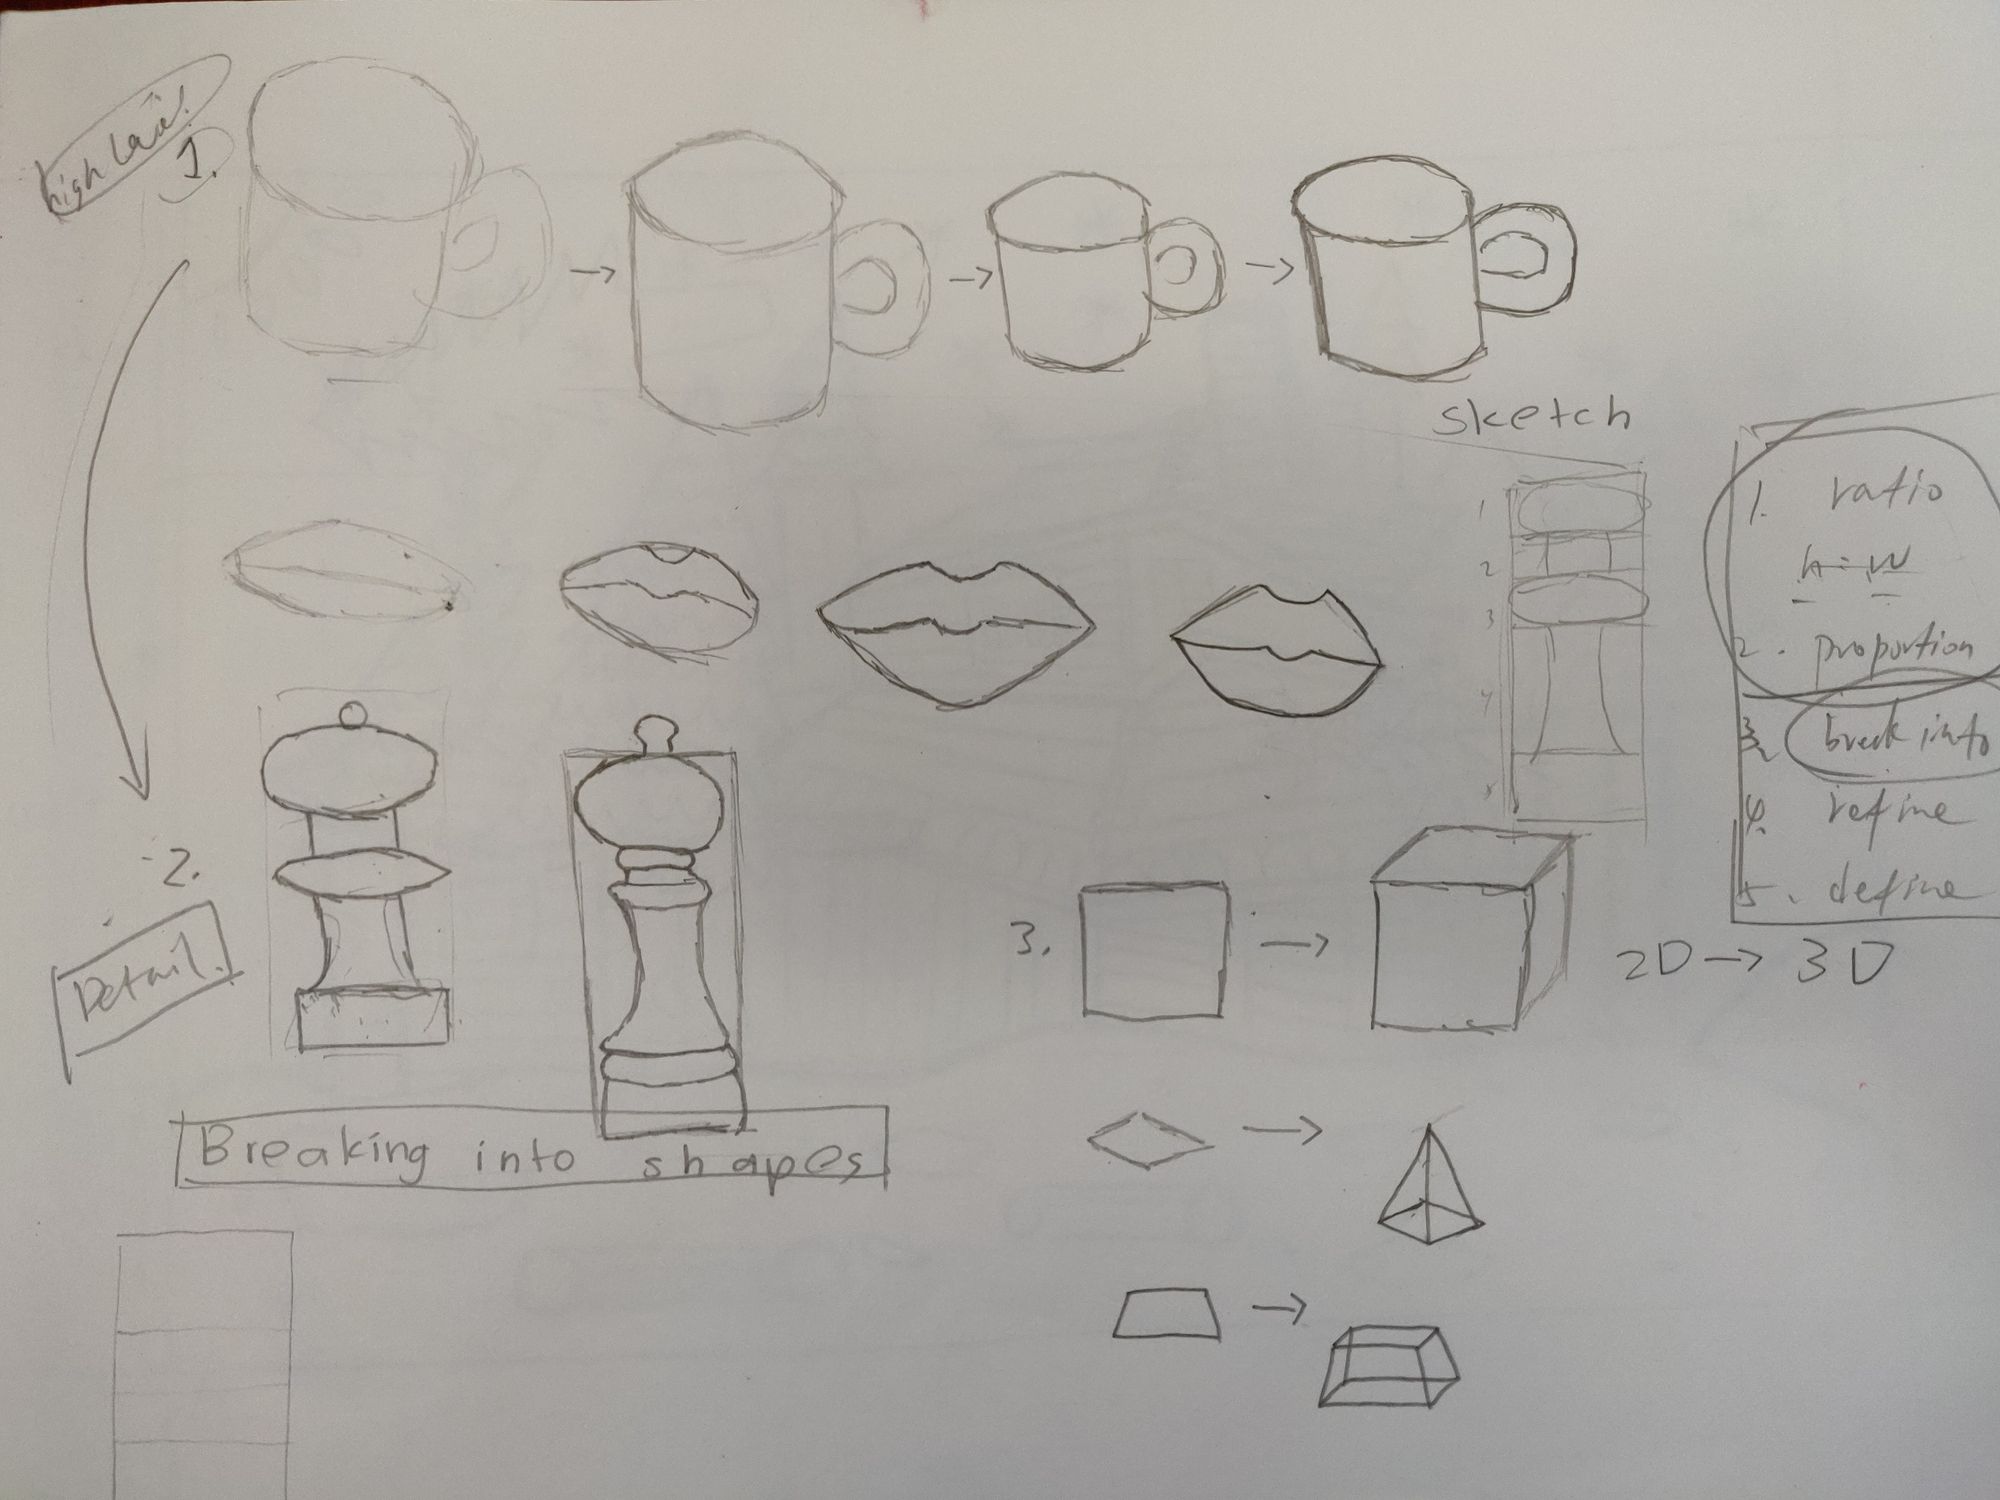 high level
1.
sketch
1
2
3
4
1. ratio
h : w
2. proportion
3. break into
4. refine
5. define
2.
Detail.
3.
2D → 3D
Breaking into shapes